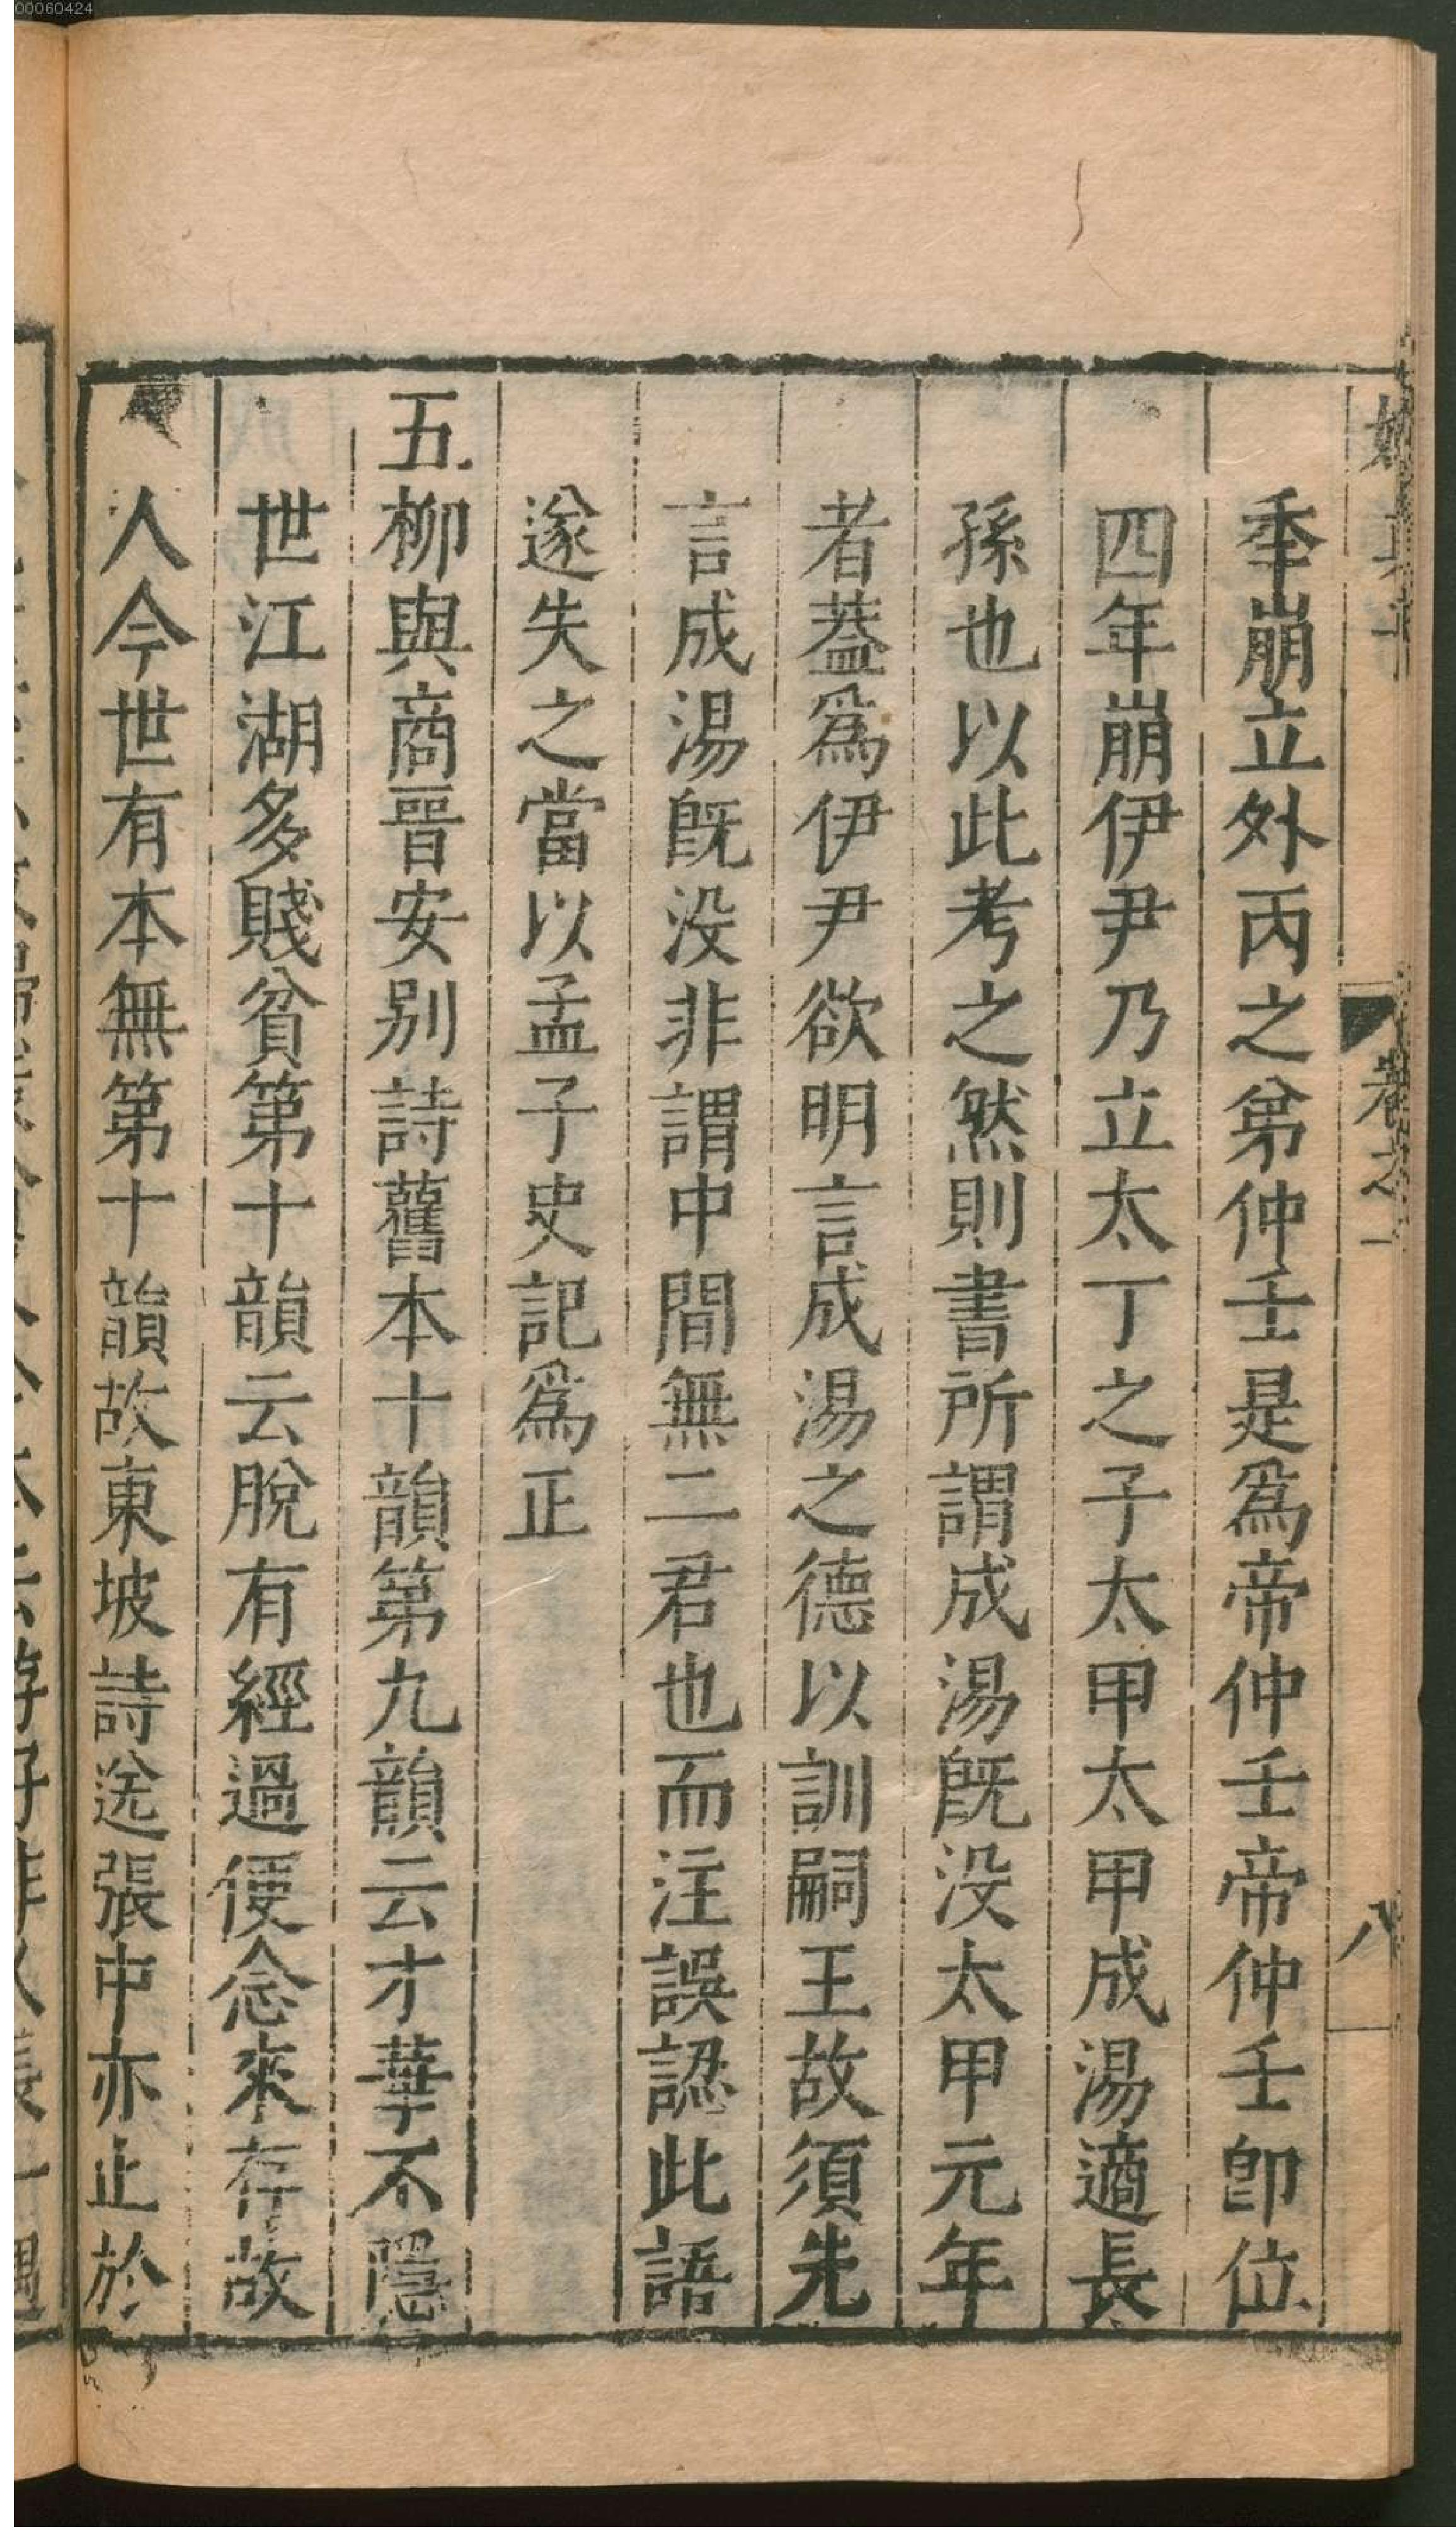 00060424
卷之一
八
秊崩立外丙之弟仲壬是爲帝仲壬帝仲壬卽位
四年崩伊尹乃立太丁之子太甲太甲成湯適長
孫也以此考之然則書所謂成湯旣没太甲元年
者葢爲伊尹欲明言成湯之德以訓嗣王故須先
言成湯旣没非謂中間無二君也而注誤認此語
遂失之當以孟子史記爲正
五柳與商晉安别詩舊本十韻第九韻云才華不隱
世江湖多賤貧第十韻云脫有經過便念來存故
人今世有本無第十韻故東坡詩送張中亦止於